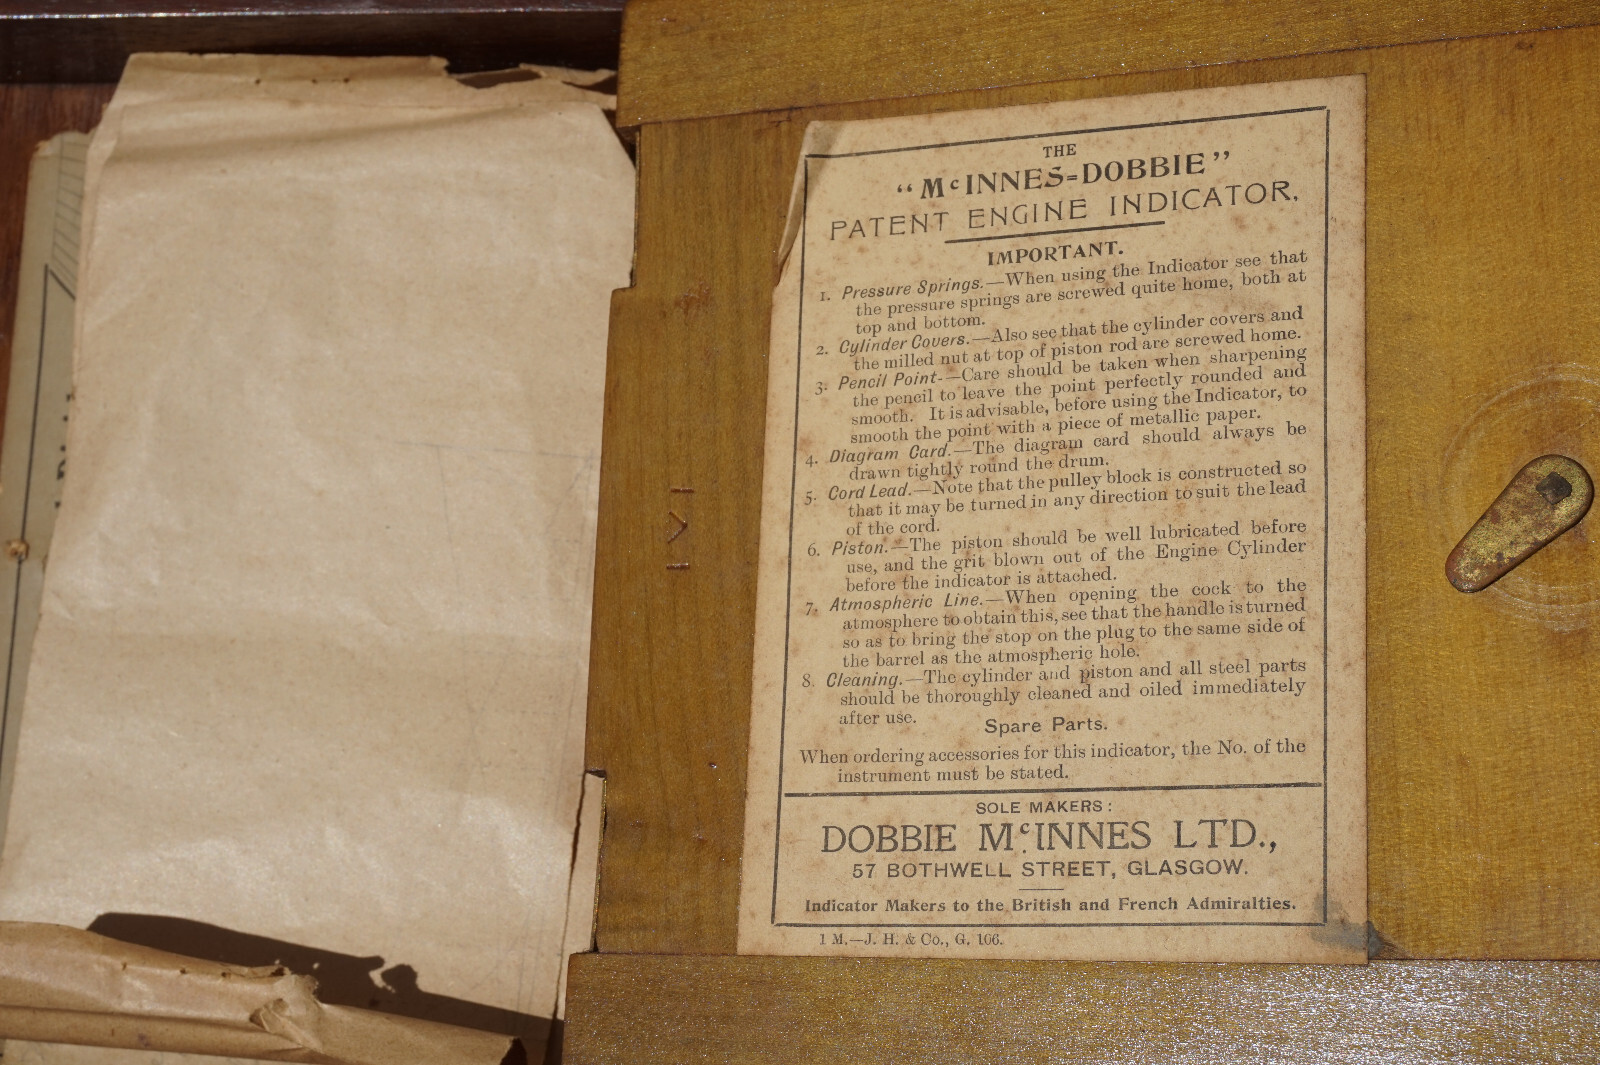 THE
“McINNES=DOBBIE”
PATENT ENGINE INDICATOR.
IMPORTANT.
1. Pressure Springs.—When using the Indicator see that
the pressure springs are screwed quite home, both at
top and bottom.
2. Cylinder Covers.—Also see that the cylinder covers and
the milled nut at top of piston rod are screwed home.
3. Pencil Point.—Care should be taken when sharpening
the pencil to leave the point perfectly rounded and
smooth. It is advisable, before using the Indicator, to
smooth the point with a piece of metallic paper.
4. Diagram Card.—The diagram card should always be
drawn tightly round the drum.
5. Cord Lead.—Note that the pulley block is constructed so
that it may be turned in any direction to suit the lead
of the cord.
6. Piston.—The piston should be well lubricated before
use, and the grit blown out of the Engine Cylinder
before the indicator is attached.
7. Atmospheric Line.—When opening the cock to the
atmosphere to obtain this, see that the handle is turned
so as to bring the stop on the plug to the same side of
the barrel as the atmospheric hole.
8. Cleaning.—The cylinder and piston and all steel parts
should be thoroughly cleaned and oiled immediately
after use.
Spare Parts.
When ordering accessories for this indicator, the No. of the
instrument must be stated.
SOLE MAKERS:
DOBBIE McINNES LTD.,
57 BOTHWELL STREET, GLASGOW.
Indicator Makers to the British and French Admiralties.
1 M.—J. H. & Co., G. 166.